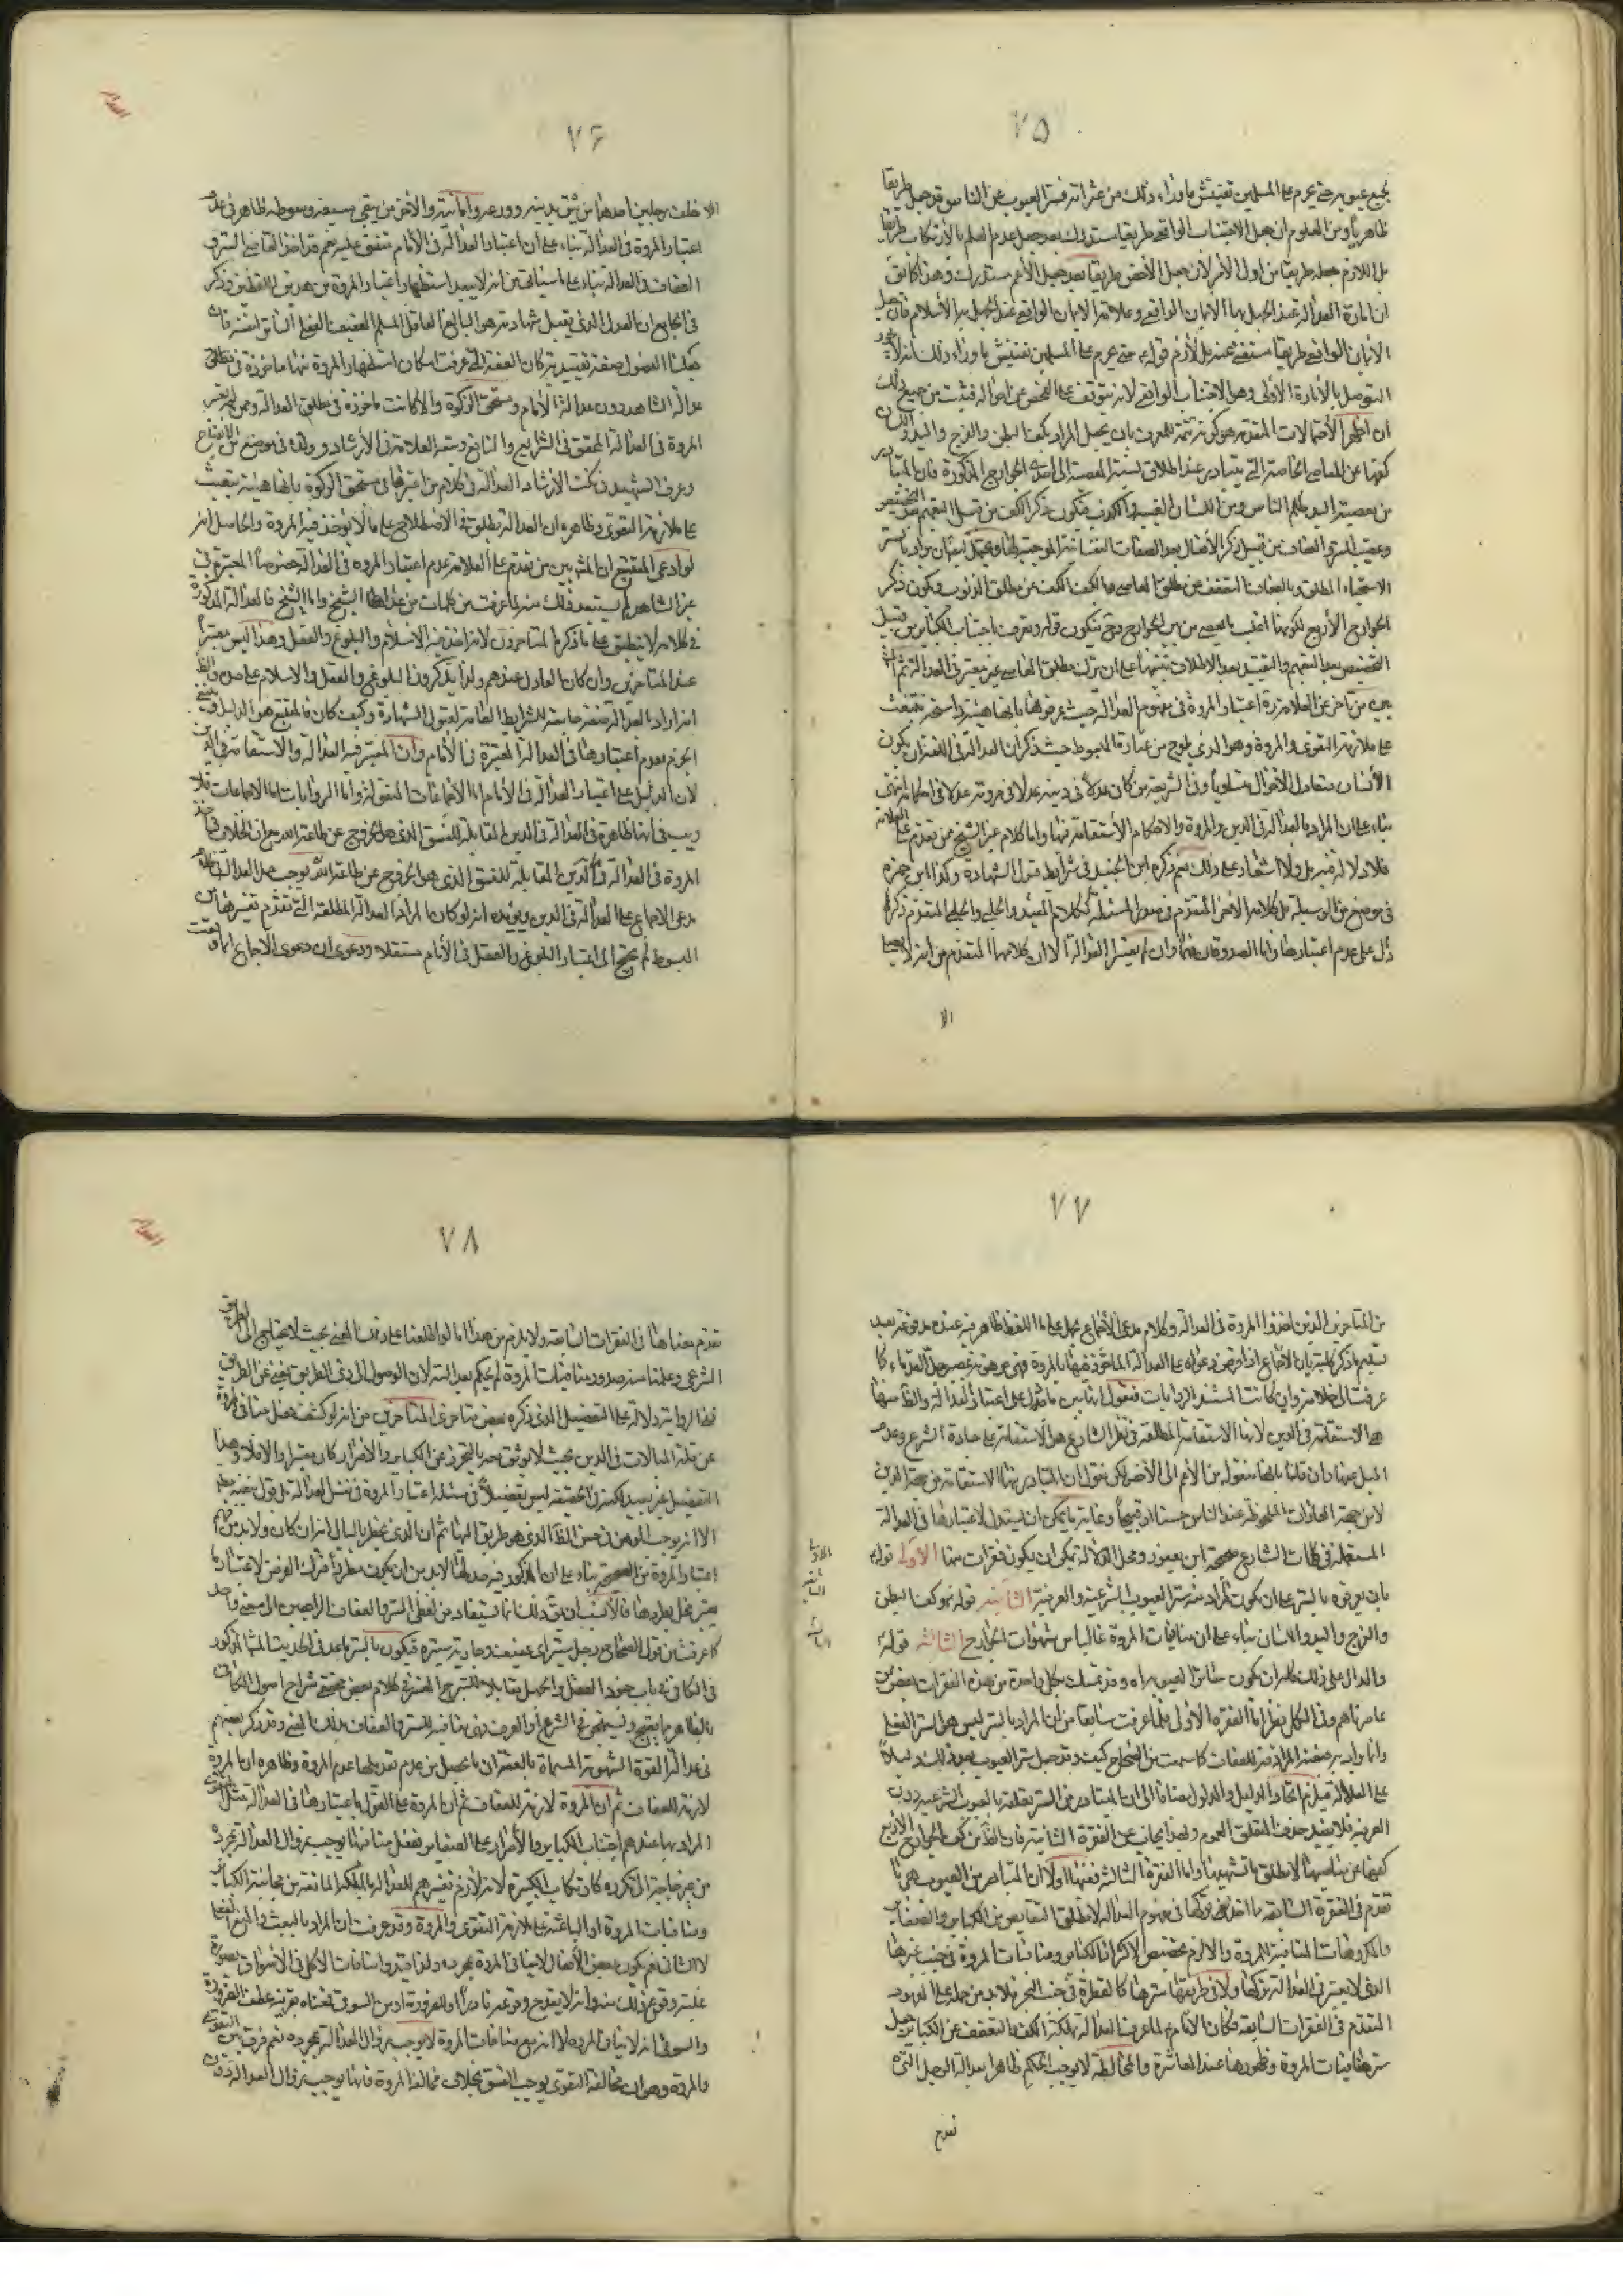 ٧٥
بجميع عيوبه حتى يحرم على المسلمين تفتيش ما وراء ذلك من عثراته فستر العيوب عن الناس قد جعل طريقا
ظاهريا ومن المعلوم ان جعل الاجتناب الواقعي طريقا مستدرك بعد جعل عدم العلم بالارتكاب طريقا
بل اللازم جعله طريقا من اول الأمر لان جعل الأخص طريقا بعد جعل الأعم مستدرك وهذا كما يق
ان امارة العدالة عند الجهل بها الايمان الواقعي وعلامة الايمان الواقعي عند الجهل به الاسلام فان جعل
الايمان الواقعي طريقا مستغنى عنه بل لازم قوله حتى يحرم على المسلمين تفتيش ما وراء ذلك انه لا يجوز
التوصل بالأمارة الأولى وهو الاجتناب الواقعي لانه يتوقف على الفحص عن احواله فثبت من جميع ذلك
ان اظهر الاحتمالات المتقدمة هو كونه تتمة للمعرف بان يجعل المراد بكف البطن والفرج واليد واللسان
كفها عن المعاصي الخاصة التي يتبادر عند اطلاق نسبة المعصية الى احدى الجوارح المذكورة فان المتبادر
من معصية اليد ظلم الناس ومن اللسان الغيبة والكذب فيكون ذكر الكف من قبيل التعميم بعد التخصيص
وعقيب الستر والعفاف من قبيل ذكر الأفعال بعد الصفات النفسانية الموجبة لها ويحتمل ايضا ان يراد بالستر
الاستحياء المطلق وبالعفاف التعفف عن مطلق المعاصي وبالكف الكف عن مطلق الذنوب ويكون ذكر
الجوارح الأربع لكونها اغلب ما يعصى من بين الجوارح وح فيكون قوله وتعرف باجتناب الكبائر من قبيل
التخصيص بعد التعميم والتقييد بعد الاطلاق تنبيها على ان ترك مطلق المعاصي غير معتبر في العدالة ثم المشهور
بين من تأخر عن العلامة ره اعتبار المروة في مفهوم العدالة حيث عرفوها بانها هيئة راسخة تبعث
على ملازمة التقوى والمروة وهو الذي يلوح من عبارة المبسوط حيث ذكر ان العدالة في اللغة ان يكون
الأنسان متعادل الاحوال متساويا وفي الشريعة من كان عدلا في دينه عدلا في مروته عدلا في احكامه انتهى
بناء على ان المراد بالعدالة في الدين والمروة والاحكام الاستقامة فيها واما كلام غير الشيخ ممن تقدم على العلامة
فلا دلالة فيه بل ولا اشعار على ذلك نعم ذكره ابن الجنيد في شرايط قبول الشهادة وكذا ابن حمزة
في موضع من الوسيلة بل كلامه الأخر المتقدم في صدر المسئلة ككلام المفيد والحلبي والحلي المتقدم ذكرها
دال على عدم اعتبارها واما الصدوقان فهما وان لم يعتبرا العدالة الا ان كلامهما المتقدم من انه لا يصلى
الا
٧٦
الا خلف رجلين احدهما من تثق بدينه وورعه وأمانته والأخر من يتقى سيفه وسوطه ظاهر في عدم
اعتبار المروة في العدالة بناء على ان اعتبار العدالة في الأمام متفق عليه نعم قد اخذ القاضي الستر و
العفاف في العدالة بناء على ما سيأتي من انه لا يبعد استظهار اعتبار المروة من هذين اللفظين وذكر
في الجامع ان العدل الذي يقبل شهادته هو البالغ العاقل المسلم العفيف الفعلي الساتر لنفسه فان
جعلنا الموصول صفة تقييدية كان العفة التي عرفت امكان استظهار المروة منها مأخوذة في مطلق
عدالة الشاهد دون عدالة الأمام ومستحق الزكوة والا كانت مأخوذة في مطلق العدالة وممن لم يعتبر
المروة في العدالة المحقق في الشرايع والنافع وتبعه العلامة في الأرشاد وولده في موضع من الايضاح
وعرف الشهيد في نكت الأرشاد العدالة في كلام من اعتبرها في مستحق الزكوة بانها هيئة تبعث
على ملازمة التقوى وظاهره ان العدالة تطلق في الاصطلاح على ما لا يؤخذ فيه المروة والحاصل انه
لو ادعى المتتبع ان المشهور بين من تقدم على العلامة عدم اعتبار المروة في العدالة خصوصا المعتبرة في
غير الشاهد لم يستبعد ذلك منه لما عرفت من كلمات من عدا الشيخ واما الشيخ فالعدالة المذكورة
في كلامه لا ينطبق على ما ذكره المتأخرون لانه اخذ فيه الاسلام والبلوغ والعقل وهذا ليس معتبرا
عند المتأخرين وان كان العادل عندهم ولذا يذكرون البلوغ والعقل والاسلام على حدة والظ
انه اراد بالعدالة صفة جامعة للشرايط العامة لقبول الشهادة وكيف كان فالمتبع هو الدليل وينبغي
الجزم بعدم اعتبارها في العدالة المعتبرة في الأمام وان المعتبر فيه العدالة والاستقامة في الدين
لان الدليل على اعتبار العدالة في الأمام اما الاجماعات المنقولة واما الروايات اما الاجماعات فلا
ريب في انها ظاهرة في العدالة في الدين المقابلة للفسق الذي هو الخروج عن طاعة الله مع ان الخلاف في اخذ
المروة في العدالة في الدين المقابلة للفسق الذي هو الخروج عن طاعة الله يوجب حمل العدالة في كلام
مدعى الاجماع على العدالة في الدين ويؤيده انه لو كان المراد العدالة المطلقة التي تقدم تفسيرها من
المبسوط لم يحتج الى اعتبار البلوغ والعقل في الأمام مستقلا ودعوى ان دعوى الاجماع انما وقعت
٧٧
من المتأخرين الذين اخذوا المروة في العدالة وكلام مدعى الأجماع يحمل على ما اللفظ ظاهر فيه عنده مدفوعة بعد
تسليم ما ذكر كلية بان الاجماع اذا فرض دعواه على العدالة المأخوذ فيها المروة فهي موهونة بمصير جل القدماء كما
عرفت الى خلافه وان كانت المستند الروايات فنقول ان ما بين ما دل على اعتبار العدالة والظ منها
هي الاستقامة في الدين لانها الاستقامة المطلقة في نظر الشارع هو الاستقامة على جادة الشرع وعدم
الميل عنها وان قلنا بانها منقولة من الأعم الى الأخص لكن نقول ان المتبادر منها الاستقامة من جهة الدين
لا من جهة العادات الملحوظة عند الناس حسنا او قبيحا وغاية ما يمكن ان يستدل لاعتبارها في العدالة
المستعملة في كلمات الشارع صحيحة ابن يعفور ومحل الدلالة يمكن ان يكون فقرات منها الأولى قوله
بان يعرفوه بالستر على ان يكون المراد منه ستر العيوب الشرعية والعرفية الثانية قوله وكف البطن
والفرج واليد واللسان بناء على ان منافيات المروة غالبا من شهوات الجوارح الثالثة قوله
والدال على ذلك كله ان يكون ساترا لعيوبه اه وقد تمسك بكل واحدة من هذه الفقرات بعض من
عاصرناهم وفي الكل نظر اما الفقرة الأولى فلما عرفت سابقا من ان المراد بالستر ليس هو الستر الفعلي
وانما يراد به صفة مرادفة للعفاف كما سمعت من الصحاح كيف وقد جعل ستر العيوب بعد ذلك دليلا
على العدالة فيلزم اتحاد الدليل والمدلول مضافا الى ان المتبادر من الستر تعلقه بالعيوب الشرعية دون
العرفية فلا يفيد حذف المتعلق العموم وبهذا يجاب عن الفقرة الثانية فان الظ من كف الجوارح الأربع
كفها عن معاصيها لا مطلق ما تشتهيها واما الفقرة الثالثة ففيها اولا ان المتبادر من العيوب هي ما
تقدم في الفقرة السابقة مما اخذ تركها في مفهوم العدالة لا مطلق النقايص من الكبائر والصغاير
والمكروهات المنافية للمروة والا لزم تخصيص الأكثر اذ الكبائر ومنافيات المروة في جنب غيرها
الذي لا يعتبر في العدالة تركها ولا في طريقها سترها كالقطرة في جنب البحر فلا بد من حمله على المعهود
المتقدم في الفقرات السابقة فكان الأمام لما عرف العدالة بملكة الكف والتعفف عن الكبائر جعل
ستر منافيات المروة وظهورها عند المعاشرة والمخالطة لا يوجب الحكم ظاهرا بعدالة الرجل التي
تقدم
٧٨
تقدم معناها في الفقرات السابقة ولا يلزم من هذا انا لو اطلعنا على ... بحيث لا يحتاج الى الطريق
الشرعي وعلمنا منه صدور منافيات المروة لم يحكم بعدالته لان الوصول الى ذي الطريق يغني عن الطريق
ففي الرواية دلالة على التفصيل الذي ذكره بعض متأخري المتأخرين من انه لو كشف فعل منافي المروة
عن قلة المبالات في الدين بحيث لا يوثق معه بالتحرز عن الكبائر والاصرار كان معتبرا والا فلا وهذا
التفصيل غير بعيد لكنه في الحقيقة ليس تفصيلا في مسئلة اعتبار المروة في نفس العدالة بل قول بعدمه
الا انه يوجب الوهن في حسن الظ الذي هو طريق اليها ثم ان الذي يخطر بالبال انه ان كان ولا بد من فهم
اعتبار المروة من الصحيحة بناء على ان المذكور فيه حد لها لا بد من ان يكون مطردا ...
... فالأنسب ان يق ذلك انما يستفاد من لفظي الستر والعفاف الراجعين الى معنى واحد
كما عرفت من قول الصحاح رجل ستير اي عفيف وجارية ستيرة فيكون المراد بالستر ما عد في الحديث المشهور المذكور
في الكافي في باب جنود العقل والجهل مقابلا للتبرج المفسر في كلام بعض محققي شراح اصول الكافي
بالتظاهر بما يقبح ويستهجن في الشرع أو العرف فهي منافية للستر والعفاف بذلك المعنى وقد ذكر بعضهم
في عدالة القوة الشهوية المسماة بالعفة ان ما يحصل من عدم تعديلها عدم المروة وظاهره ان المروة
لازمة للعفاف ثم ان المروة لازمة للعفاف ثم ان المروة على القول باعتبارها في العدالة مثل التقوى
المراد بها عندهم اجتناب الكبائر والأصرار على الصغاير ففعل منافيها يوجب زوال العدالة بمجرده
من غير حاجة الى تكرره كارتكاب الكبيرة لانه لازم تفسيرهم للعدالة بالملكة المانعة من مجانبة الكبائر
ومنافيات المروة او الباعثة على ملازمة التقوى والمروة وقد عرفت ان المراد بالبعث والمنع الفعلي
لا الشأني نعم يكون بعض الأفعال لا ينافي المروة بمجرده ولذا قيدوا منافات الأكل في الأسواق بصورة
غلبة وقوع ذلك منه وانه لا يقدح وقوعه نادرا او لضرورة او من السوقي ... عطف الضرورة
والسوقي انه لا ينافي المروة لا انه مع منافات المروة لا يوجب زوال العدالة بمجرده نعم فرق بين التقوى
والمروة وهو ان مخالفة التقوى يوجب الفسق بخلاف مخالفة المروة فانها يوجب زوال العدالة دون
الاولى
الثانية
الثالثة